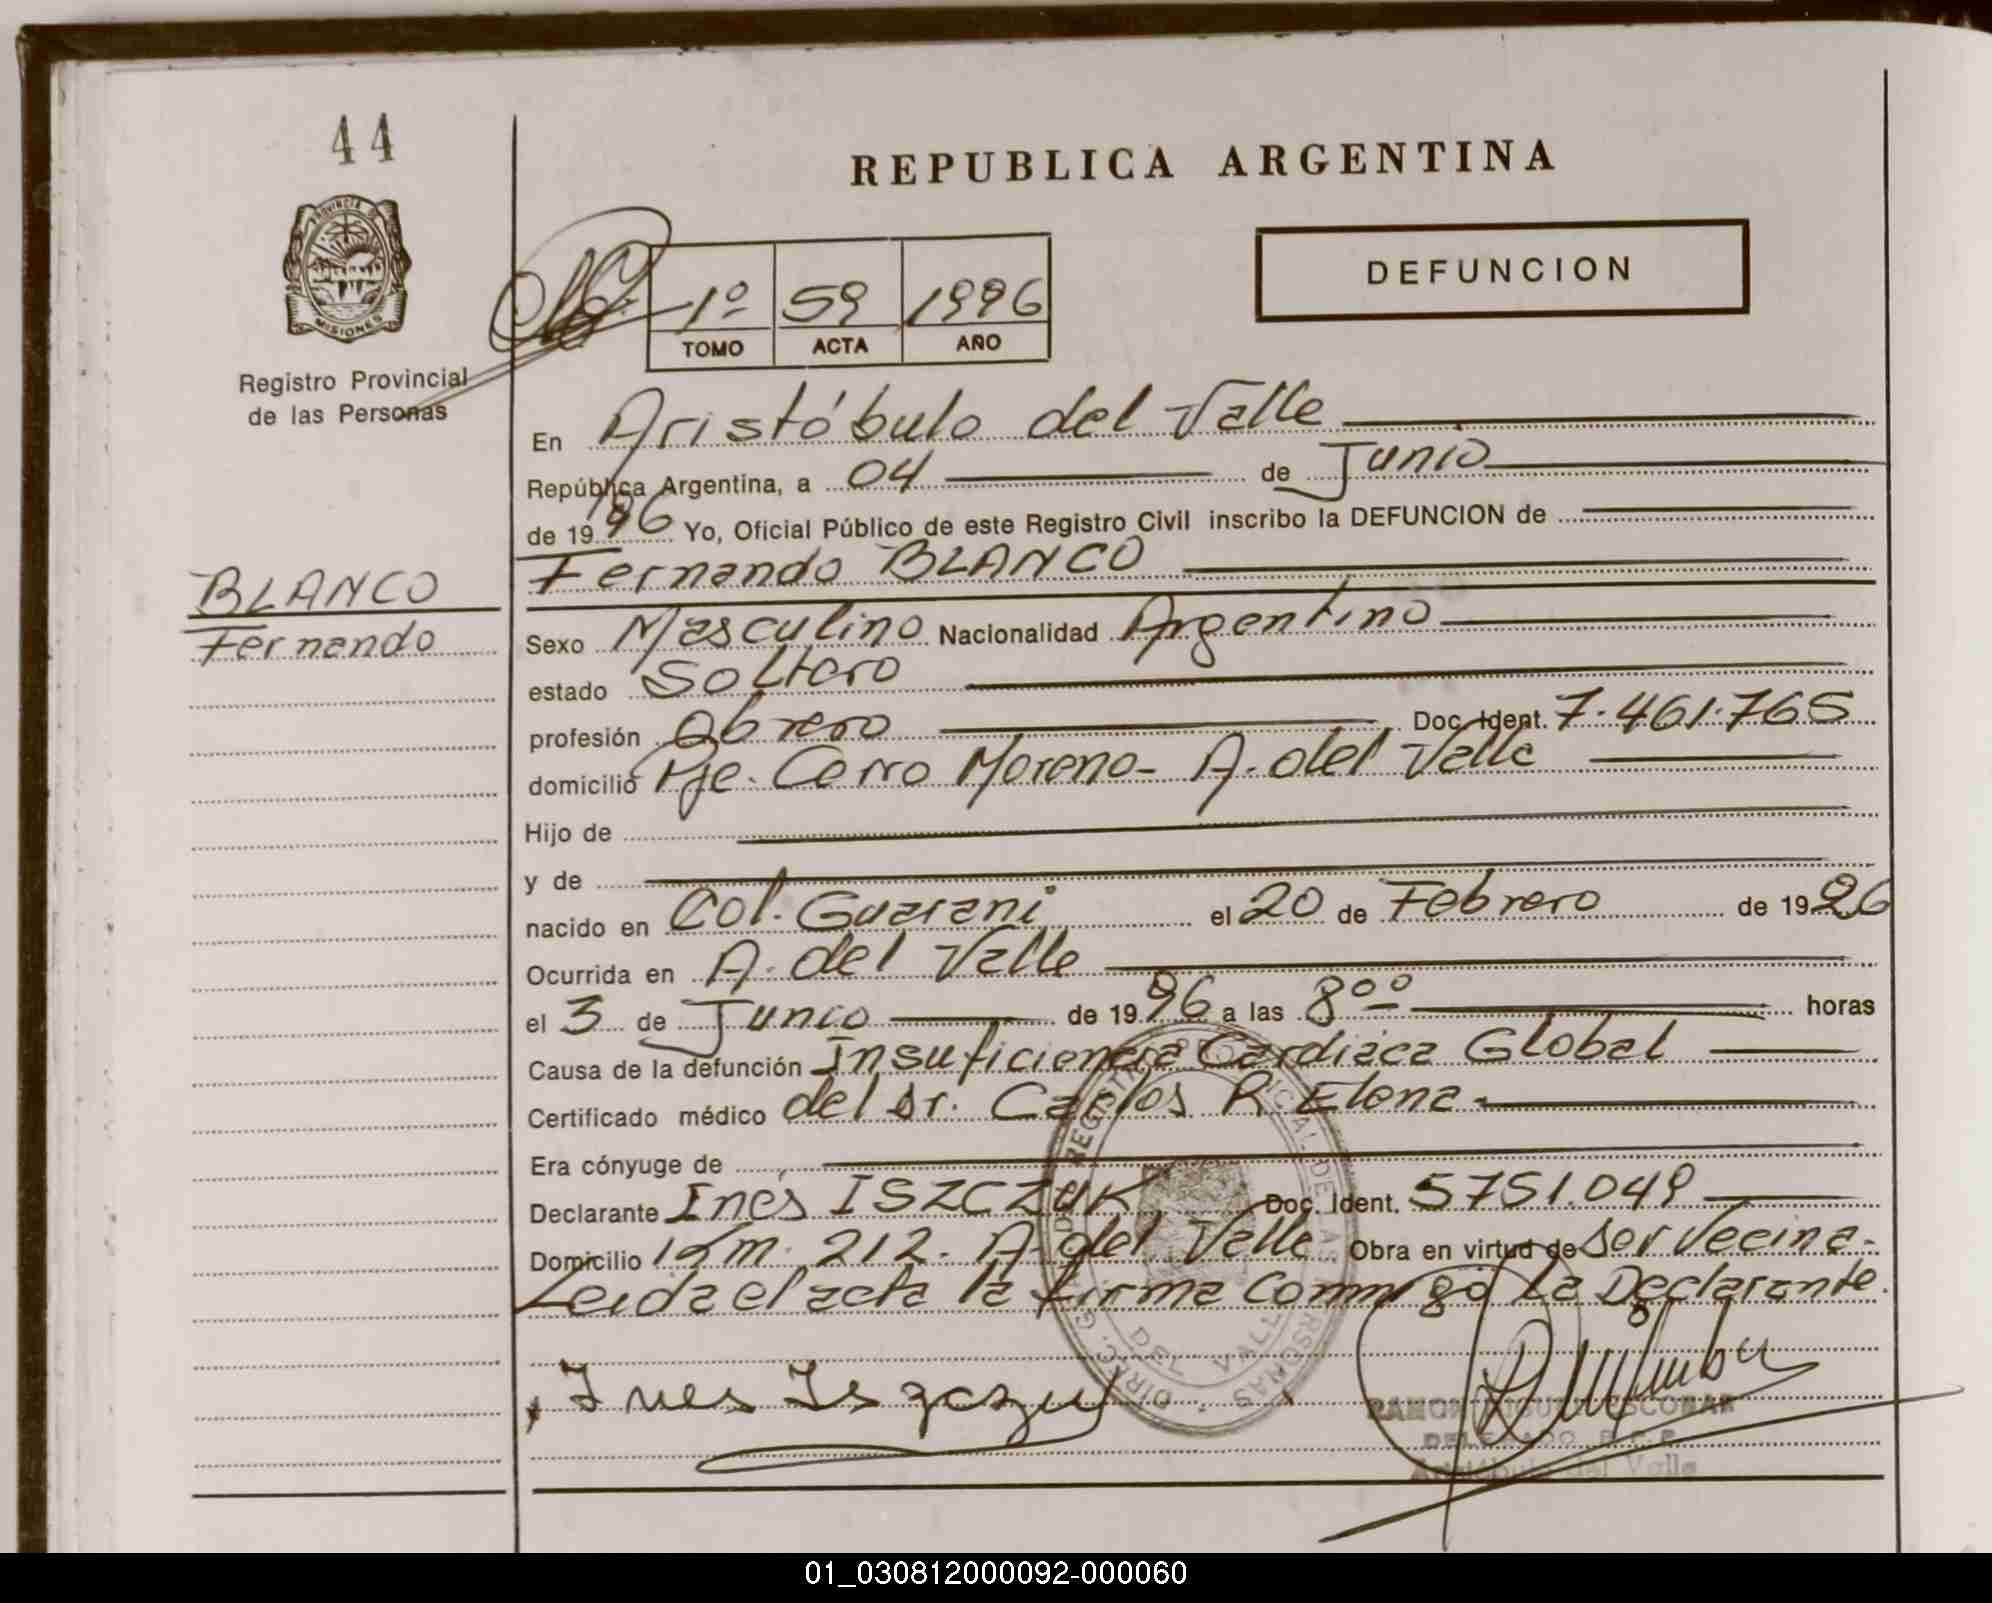 44
REPUBLICA ARGENTINA
PROVINCIA DE
MISIONES
Registro Provincial
de las Personas
1º 59 1996
TOMO ACTA AÑO
DEFUNCION
En Aristóbulo del Valle
República Argentina, a 04 de Junio
de 1996 Yo, Oficial Público de este Registro Civil inscribo la DEFUNCION de
Fernando BLANCO
BLANCO
Fernando
Sexo Masculino Nacionalidad Argentino
estado Soltero
profesión Obrero Doc. Ident. 7.461.765
domicilio Pje. Cerro Moreno - A. del Valle
Hijo de
y de
nacido en Col. Guarani el 20 de Febrero de 1926
Ocurrida en A. del Valle
el 3 de Junio de 1996 a las 8ºº horas
Causa de la defunción Insuficiencia Cardiaca Global
Certificado médico del Dr. Carlos R. Elena
Era cónyuge de
Declarante Inés ISZCZUK Doc. Ident. 5751.049
Domicilio Km. 212. A. del Valle Obra en virtud de ser Vecina.
Leida el acta la firma Conmigo La Declarante.
Ines Iszczuk
RAMON MIGUEL ESCOBAR
DELEGADO R.C.P.
Aristóbulo del Valle
01_030812000092-000060